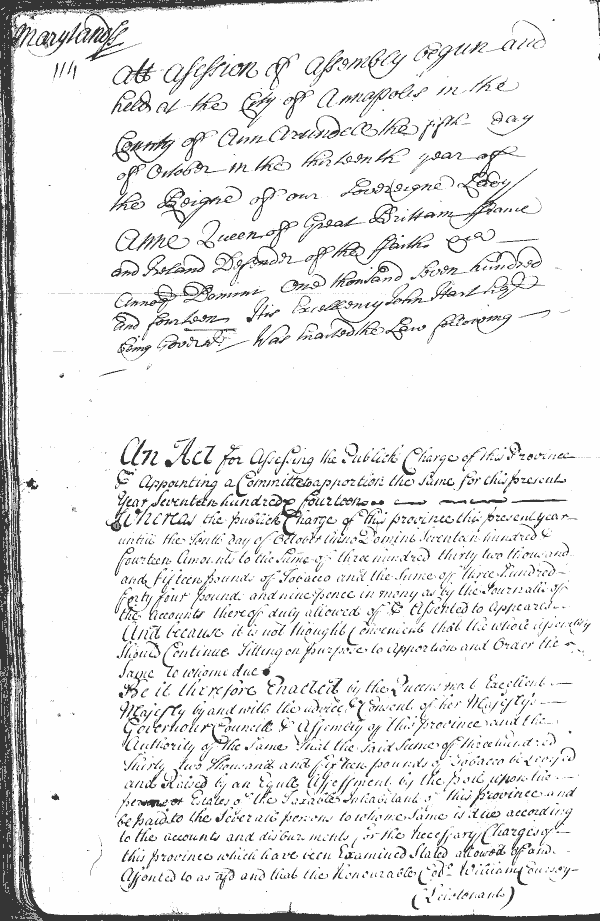 Maryland ss
114
Att a Session of Assembly begun and
held at the City of Annapolis in the
County of Ann Arundell the fifth day
of October in the thirteenth year of
the Reigne of our Sovereigne Lady
Anne Queen of Great Brittain ffrance
and Ireland Defender of the ffaith &ca
Annoq Domini One thousand Seven hundred
and fourteen His Excellency John Hart Esqr
being Governr Was Enacted the Law following
An Act for Assessing the Publick Charge of this Province
& Appointing a Committee to apportion the Same for this present
Year Seventeen hundred & fourteen
Whereas the publick Charge of this province this present year
untill the tenth day of October Anno Domini Seventeen hundred &
fourteen Amounts to the Sume of three hundred thirty two thousand
and fifteen pounds of Tobacco and the Sume of three hundred
forty four pound and nine pence in mony as by the Journalls of
the Accounts thereof duly allowed of & Assented to Appeares
And because it is not thought Convenient that the whole Assembly
should Continue Sitting on purpose to Apportion and Order the
Same to whome due
Be it therefore Enacted by the Queens most Excellent
Majesty by and with the advice & Consent of her Majestys
Governour Councill & Assembly of this Province and the
Authority of the Same That the said Sume of three hundred
thirty two thousand and fifteen pounds of Tobacco be Levyed
and Raised by an Equll Assessment by the pole upon the
persons or Estates of the Taxable Inhabitants of this Province and
be paid to the Severall persons to whome Same is due according
to the accounts and disbursments for the necessary Charges of
this province which have been Examined Stated allowed of and
Assented to as afd and that the Honourable Cod William Coursey
(Lieutenants)